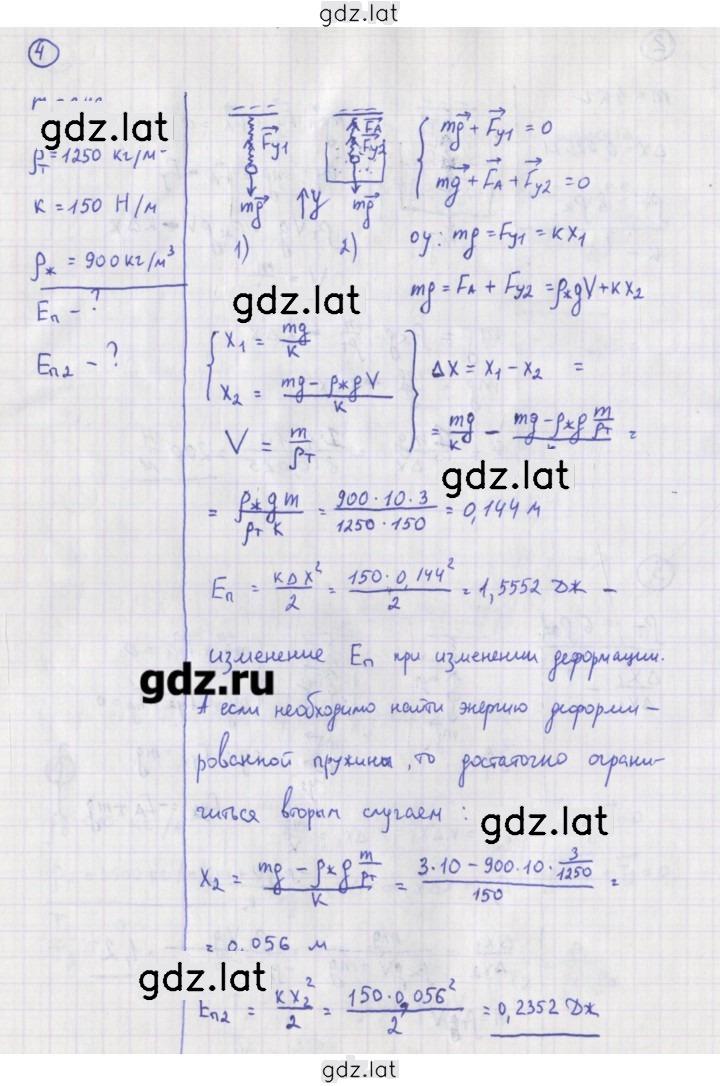 gdz.lat
4
gdz.lat
ρт = 1250 кг/м
к = 150 Н/м
ρж = 900 кг/м³
Eп - ?
Eп2 - ?
Fу1
mg
1)
↑y
FA
Fу2
mg
2)
mg + Fу1 = 0
mg + FA + Fу2 = 0
оу: mg = Fу1 = кx1
mg = FA + Fу2 = ρжgV + кx2
gdz.lat
x1 = mg/к
x2 = (mg - ρжgV)/к
V = m/ρт
Δx = x1 - x2 =
= mg/к - (mg - ρжg m/ρт) =
gdz.lat
= ρжgm/ρтк = 900·10·3/1250·150 = 0,144 м
Eп = кΔx²/2 = 150·0,144²/2 = 1,5552 Дж –
изменение Eп при изменении деформации.
gdz.ru
А если необходимо найти энергию деформи-
рованной пружины, то достаточно ограни-
читься вторым случаем:
gdz.lat
x2 = (mg - ρжg m/ρт)/к = (3·10 - 900·10·3/1250)/150 =
= 0,056 м
gdz.lat
Eп2 = кx2²/2 = 150·0,056²/2 = 0,2352 Дж
gdz.lat